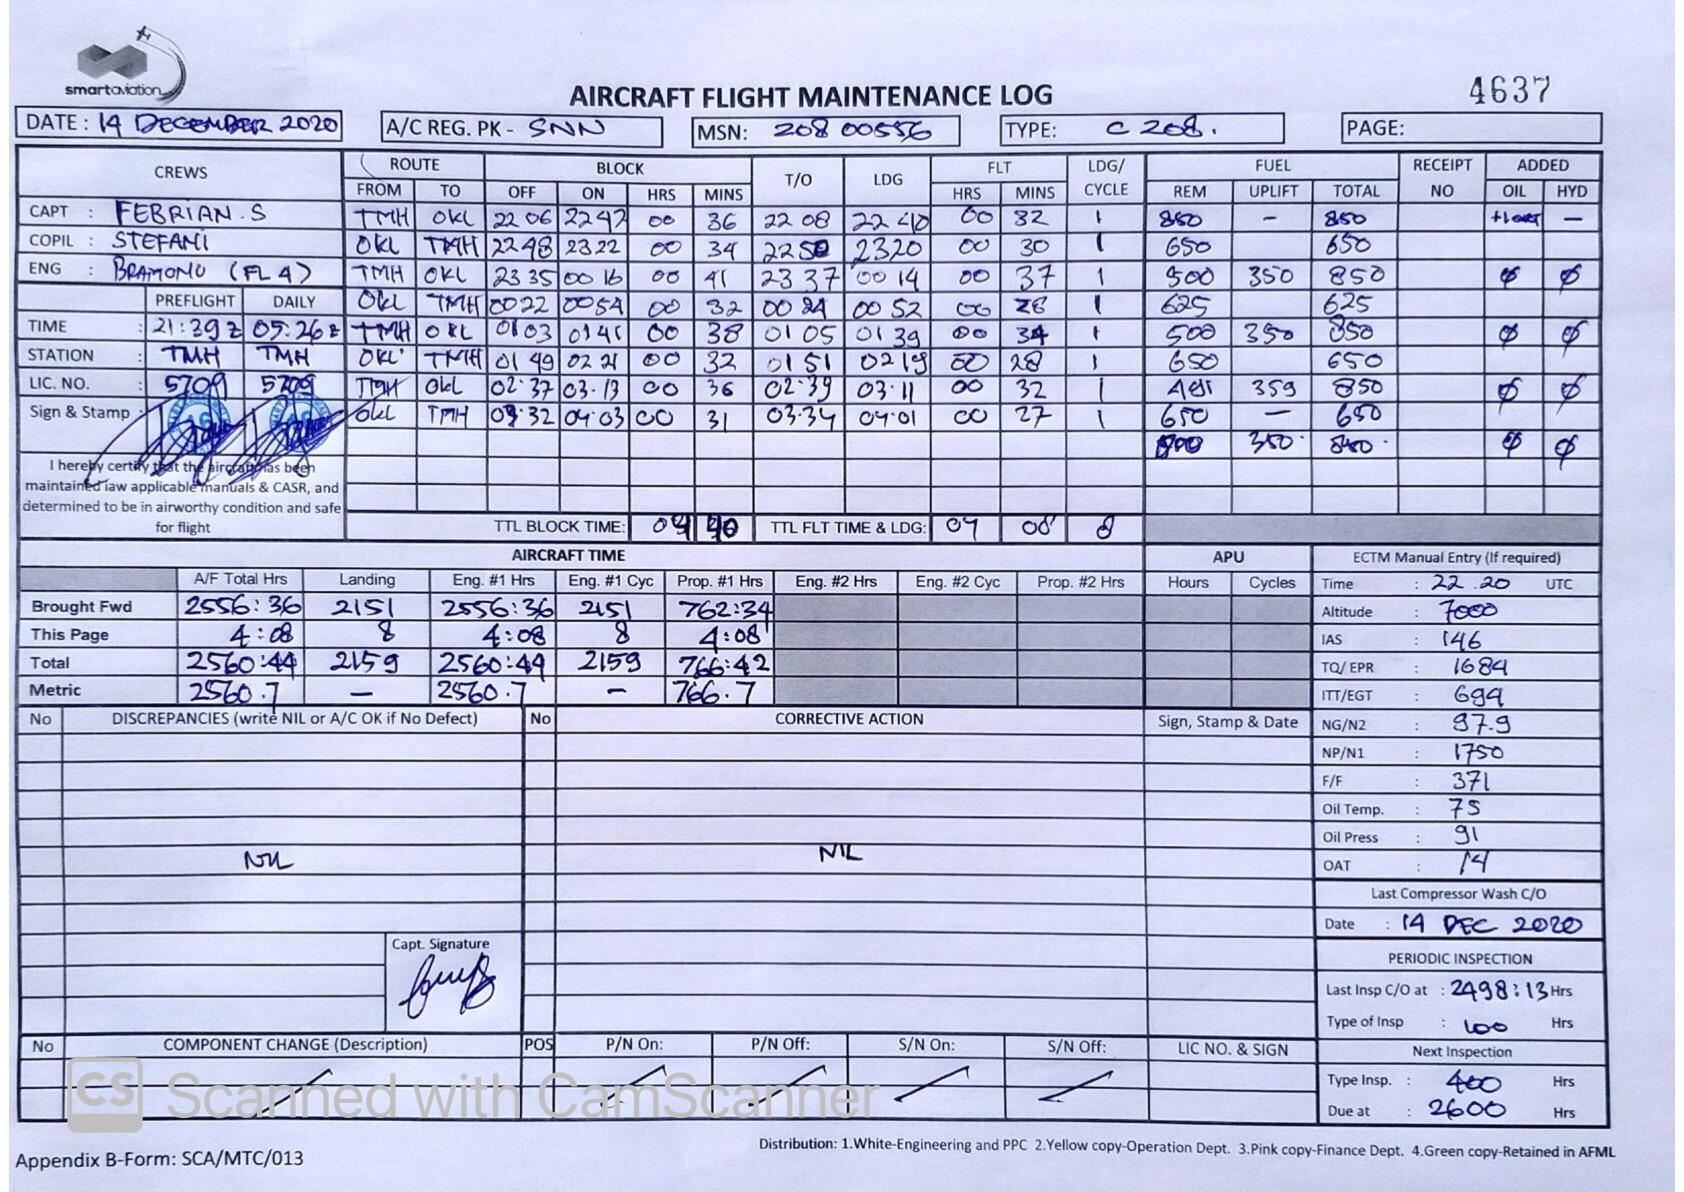 smartaviation
AIRCRAFT FLIGHT MAINTENANCE LOG
4637
DATE : 14 DECEMBER 2020
A/C REG. PK - SNN
MSN: 208 00556
TYPE: C 208.
PAGE:
CREWS
ROUTE BLOCK T/O LDG FLT LDG/ CYCLE FUEL RECEIPT NO ADDED
FROM TO OFF ON HRS MINS HRS MINS REM UPLIFT TOTAL OIL HYD
CAPT : FEBRIAN.S
COPIL : STEFANI
ENG : BRAMONO (FL 4)
PREFLIGHT DAILY
TIME : 21:39 z 05:26 z
STATION : TMH TMH
LIC. NO. : 5709 5709
Sign & Stamp :
I hereby certify that the aircraft has been
maintained iaw applicable manuals & CASR, and
determined to be in airworthy condition and safe
for flight
TMH OKL 22 06 22 42 00 36 22 08 22 40 00 32 1 850 - 850 -
OKL TMH 22 48 23 22 00 34 22 50 23 20 00 30 1 650 650
TMH OKL 23 35 00 16 00 41 23 37 00 14 00 37 1 500 350 850 ø ø
OKL TMH 00 22 00 54 00 32 00 24 00 52 00 28 1 625 625
TMH OKL 01 03 01 41 00 38 01 05 01 39 00 34 1 500 350 850 ø ø
OKL TMH 01 49 02 21 00 32 01 51 02 19 00 28 1 650 650
TMH OKL 02·37 03·13 00 36 02·39 03·11 00 32 1 491 359 850 ø ø
OKL TMH 03 32 04·03 00 31 03·34 04·01 00 27 1 650 - 650
350· ø ø
TTL BLOCK TIME: 04 40 TTL FLT TIME & LDG: 04 08 8
AIRCRAFT TIME
A/F Total Hrs Landing Eng. #1 Hrs Eng. #1 Cyc Prop. #1 Hrs Eng. #2 Hrs Eng. #2 Cyc Prop. #2 Hrs
Brought Fwd 2556:36 2151 2556:36 2151 762:34
This Page 4:08 8 4:08 8 4:08
Total 2560:44 2159 2560:44 2159 766:42
Metric 2560.7 - 2560.7 - 766.7
APU
Hours Cycles
ECTM Manual Entry (If required)
Time : 22.20 UTC
Altitude : 7000
IAS : 146
TQ/ EPR : 1684
ITT/EGT : 694
NG/N2 : 97.9
NP/N1 : 1750
F/F : 371
Oil Temp. : 75
Oil Press : 91
OAT : 14
Last Compressor Wash C/O
Date : 14 DEC 2020
PERIODIC INSPECTION
Last Insp C/O at : 2498:13 Hrs
Type of Insp : 100 Hrs
Next Inspection
Type Insp. : 400 Hrs
Due at : 2600 Hrs
No DISCREPANCIES (write NIL or A/C OK if No Defect) No CORRECTIVE ACTION Sign, Stamp & Date
NIL NIL
Capt. Signature
No COMPONENT CHANGE (Description) POS P/N On: P/N Off: S/N On: S/N Off: LIC NO. & SIGN
CS Scanned with CamScanner
Distribution: 1.White-Engineering and PPC 2.Yellow copy-Operation Dept. 3.Pink copy-Finance Dept. 4.Green copy-Retained in AFML
Appendix B-Form: SCA/MTC/013